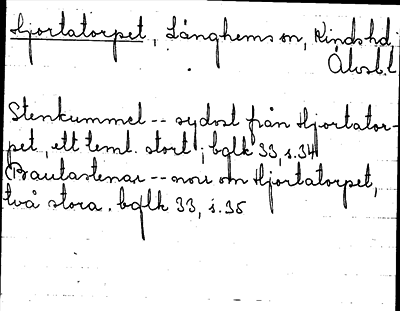 Hjortatorpet, Länghems sn, Kinds hd,
Älvsb. l
Stenkummel -- sydost från Hjortator-
pet, ett teml. stort; bglk 33, s.34
Bautastenar -- norr om Hjortatorpet,
två stora. bglk 33, s.35